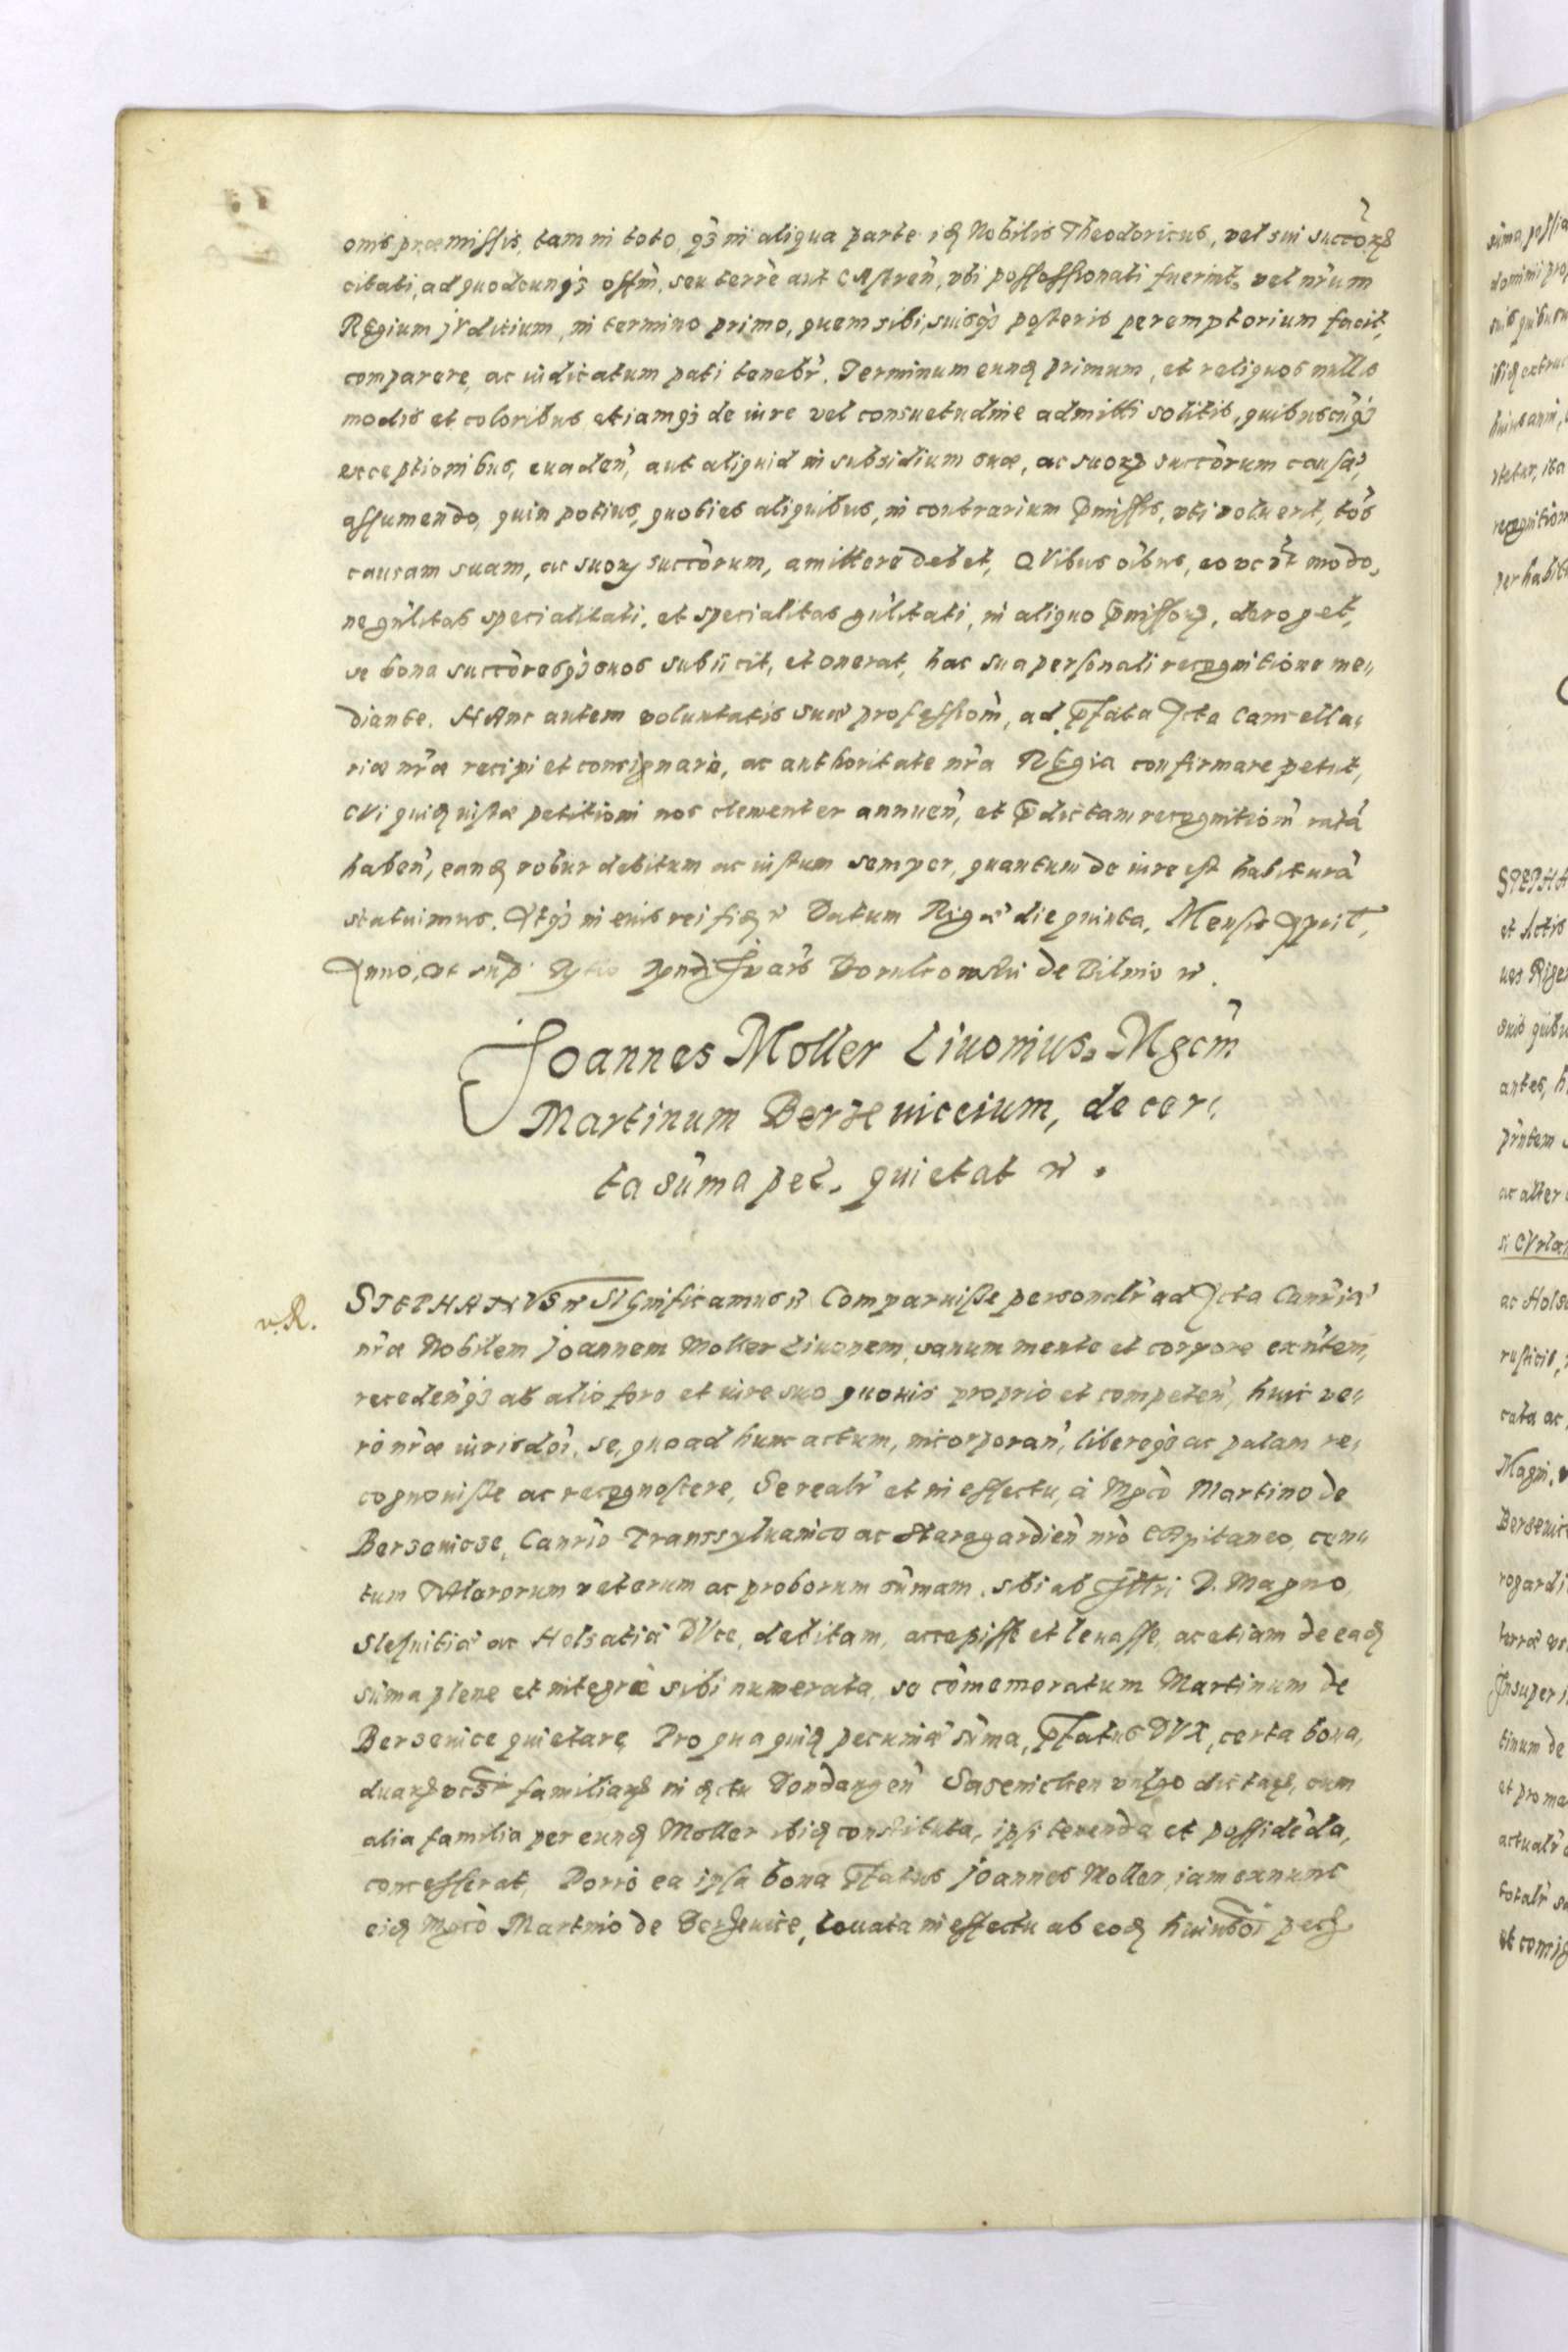 onis præmissis, tam in toto, qȝ in aliqua parte idꝫ Nobilis Theodoricus, vel sui succ̃oꝝ
citati, ad quodcunqȝ offm̃, seu terrẽ aut CAstren̄, vbi possessionati fuerint, vel nr̃um
REgium jVditium, in termino primo, quem sibi, suisqȝ posteris peremptorium facit,
comparere, ac iudicatum pati tenebr̃. Terminum eundꝫ primum, et reliquos nullis
modis et coloribus etiamqȝ de iure vel consuetudine admitti solitis, quibuscũqȝ
exceptionibus, euaden̄, aut aliquid in subsidium suæ, ac suoꝝ succ̃orum causæ,
assumendo, quin potius, quoties aliquibus, in contrarium p̃missis, vti voluerit, tõs
causam suam, ac suoꝝ succ̃orum, amittere debet, QVibus oĩbus, eo vcz̃t modo,
ne gñlitas specialitati, et specialitas gñlitati, in aliquo p̃missoꝝ, deroget,
se bona succ̃oresqȝ suos subiicit, et onerat, hac sua personali recognitione me-
diante. HAnc autem voluntatis suæ professiom̃, ad p̃fata Acta Cancella-
riæ nr̃æ recipi et consignari, ac authoritate nr̃a REgia confirmare petiit,
CVi quidꝫ iustæ petitioni nos clementer annuen̄, et p̃dictam recognitiom̃ ratã
haben̄, eandꝫ robur debitum ac iustum semper, quantum de iure est habiturã
statuimus. Atqȝ in eius rei fidꝫ ꝛc Datum Rigæ die quinta, Mensis Apriĩ,
Anno, vt supͣ Rndi Joãis Borukowski de Bilnio ꝛc.
Joannes Moller Liuonius, Mgcm̃
Martinum Berzeuiceium, de cer-
ta sũma pec̃. quietat ꝛc.
v. R.
STEPHANVS ꝛc SIGnificamus ꝛc Comparuisse personalr̃ ad Acta Canr̃iæ
nr̃æ Nobilem joannem Moller Liuonem, sanum mente et corpore exñtem,
receden̄qȝ ab alio foro et iure suo quouis proprio et competen̄, huic ve-
rò nr̃æ iurisdoĩ, se, quoad hunc actum, incorporan̄, liberegȝ ac palam re-
cognouisse ac recognoscere, Se realr̃ et in effectu, à Mgco Martino de
Berseuicze, Canr̃io Transsyluanico ac Staregardien̄ nr̃o CApitaneo, cen-
tum TAlerorum veterum ac proborum sũmam, sibi ab Jllr̃i D. Magno,
Slesuitiæ ac Holsatiæ DVce, debitam, accepisse et leuasse, ac etiam de eadꝫ
sũma plene et integrè sibi numerata, se cõmemoratum Martinum de
Berseuice quietare, Pro qua quidꝫ pecuniæ sũma, p̃fatus DVX, certa bona,
duaꝝ vcz̃t familiaꝝ in Dondangen̄ Sasenicken vulgo dictaꝝ, cum
alia familia per eundꝫ Moller ibidꝫ constituta, ipsi tenenda et possidẽda,
concesserat, Porrò ea ipsa bona p̃fatus joannes Moller, iam exnunc
eidꝫ Mgco Martino de Berseuice, leuata in effectu ab eodꝫ huiusmoĩ